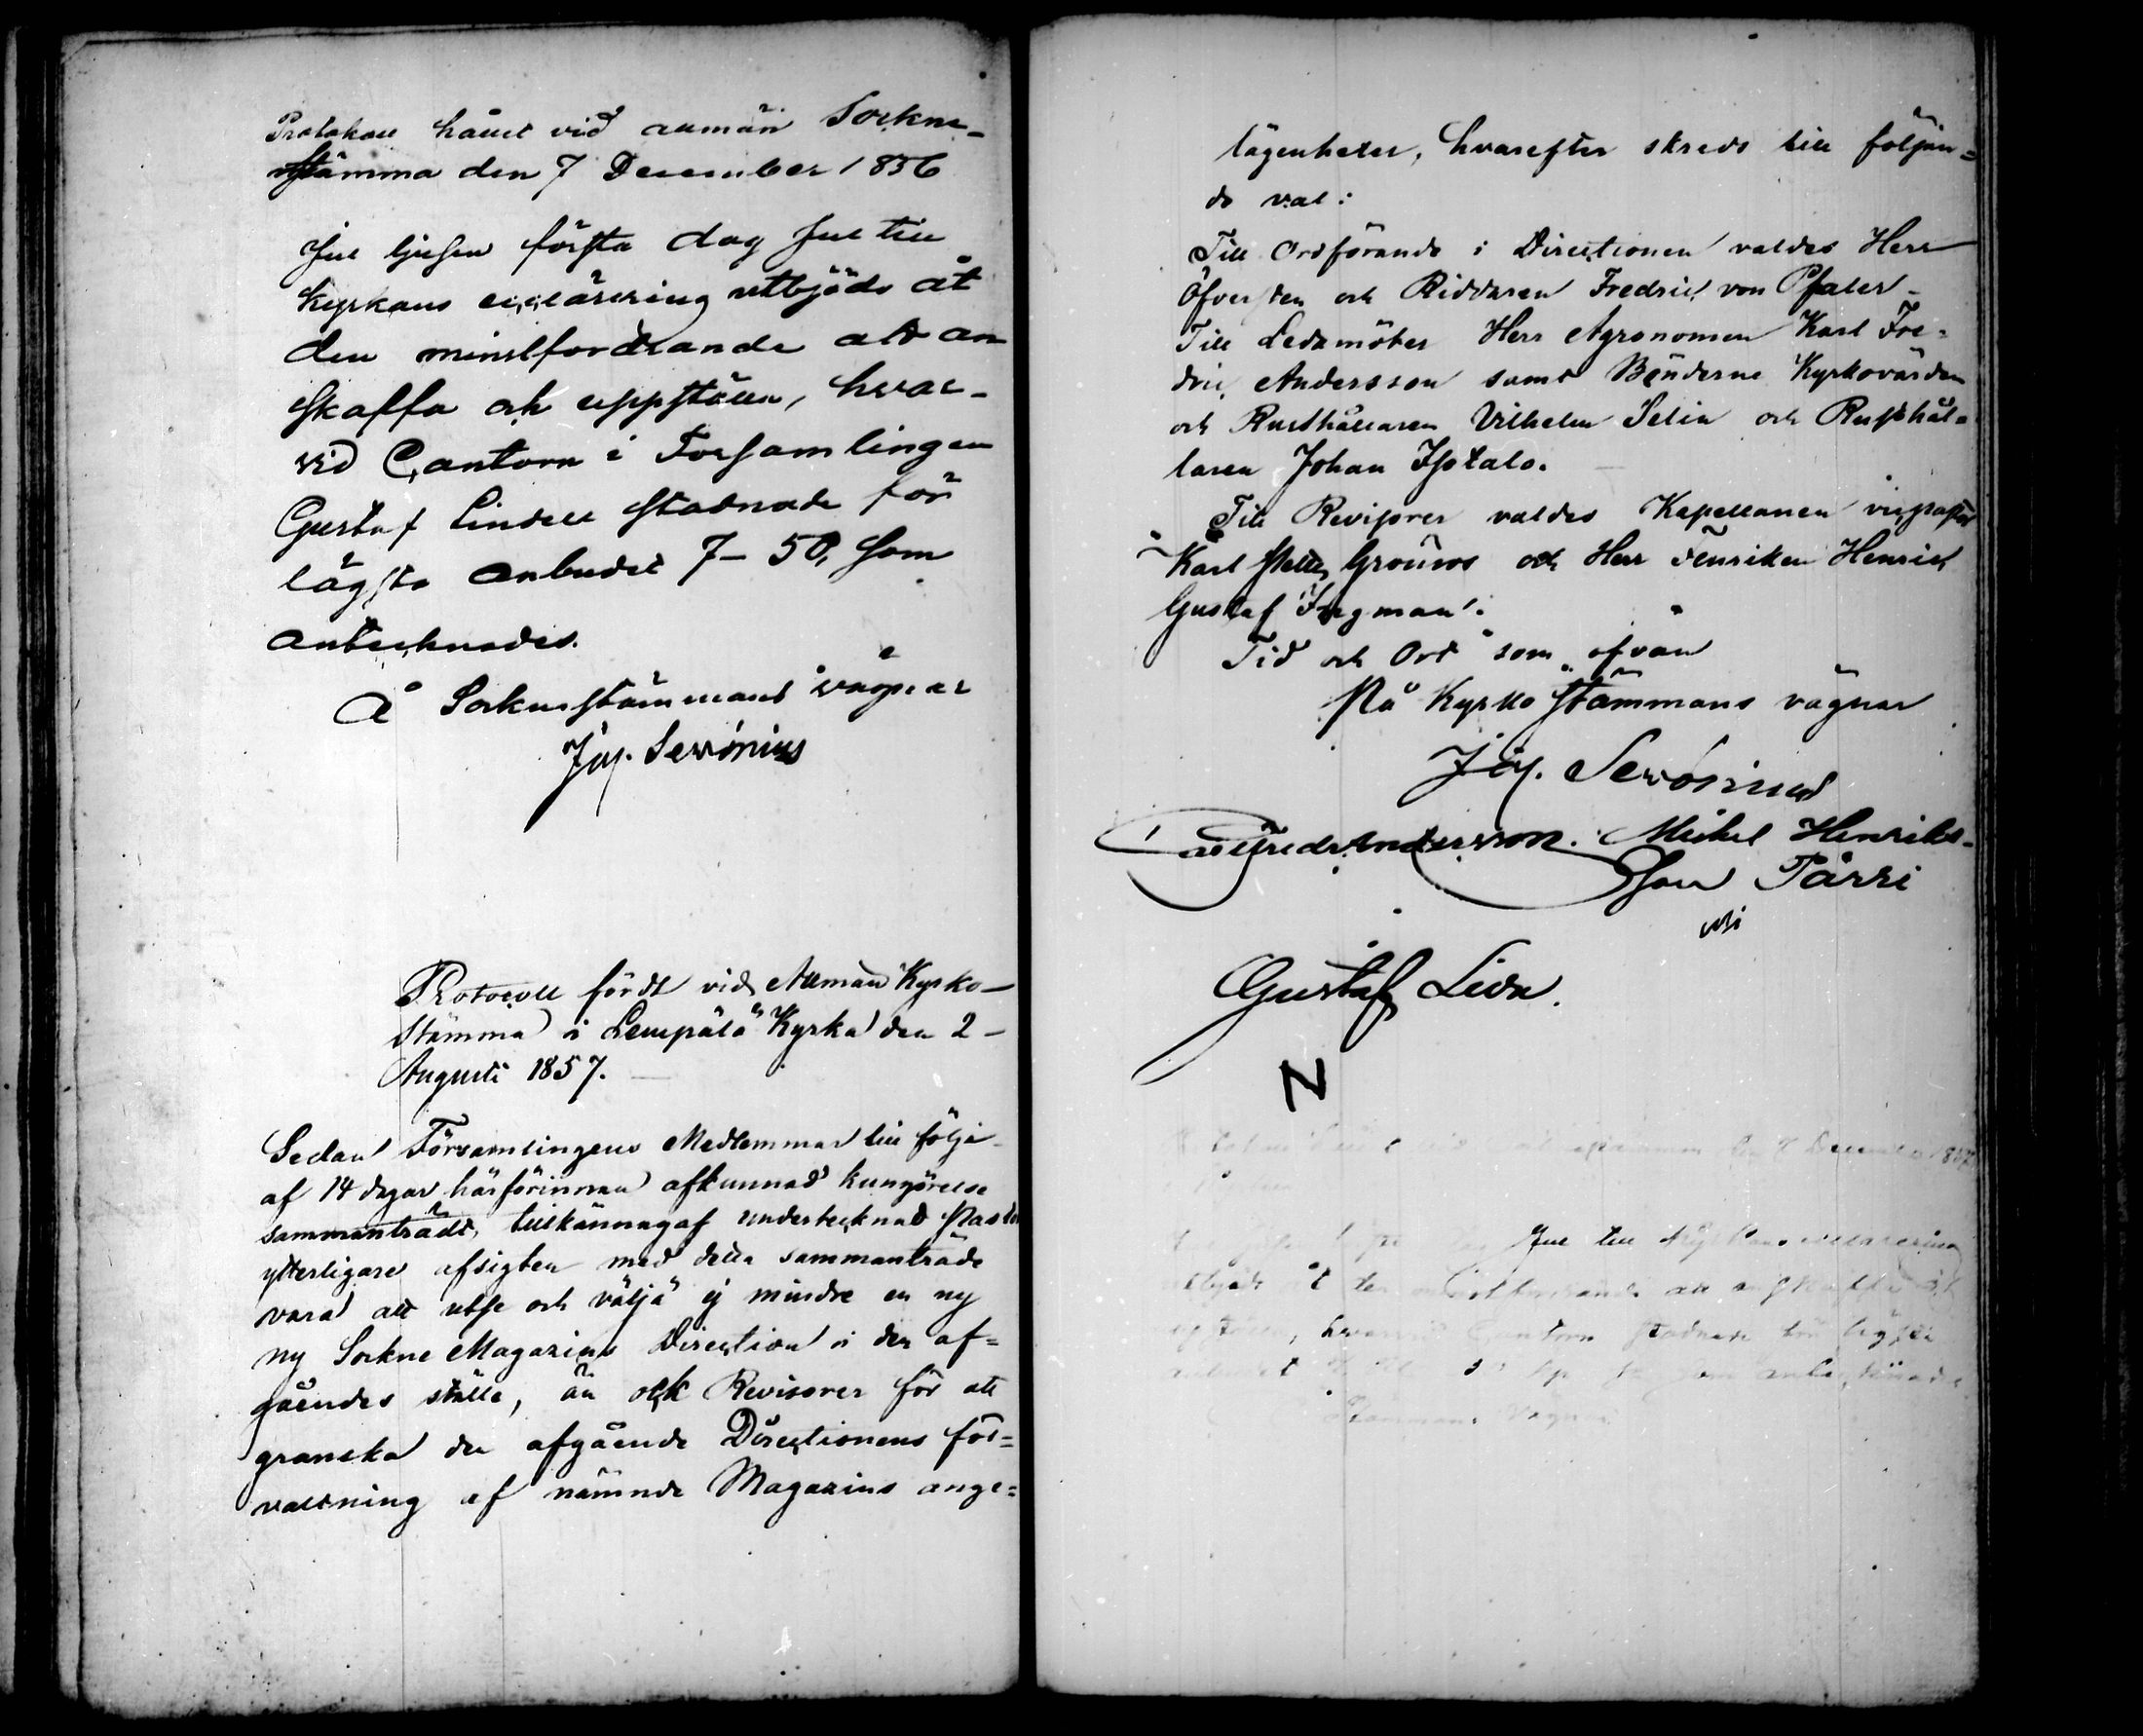 Protokoll hållet vid allmän Sockne-
stämma den 7 December 1856
Jul ljusen första dag Jul till
kyrkans ecclärering utbjöds åt
den minstfordrande att an
skaffa och uppställa, hvar-
vid Cantorn i Församlingen
Gustaf Lindell stadnade för
lägsta anbudet 7-50, som
antecknades.
På Sockenstämmans vägnar
Jos. Servónius
Protocoll fördt vid Allmän Kyrko-
stämma i Lempälä Kyrka den 2
Augusti 1857.
Sedan Församlingens Medlemmar till följe
af 14 dagar härförinnan afkunnad kungörelse
sammanträdt, tillkännagaf undertecknad Pastor
ytterligare afsigten med detta sammanträde
vara att utse och välja ej mindre en ny
ny Sockne Magazins Direction i den af=
gåendes ställe, än ock Revisorer för att
granska den afgående Directionens för=
valtning af nämnde Magazins ange=
lägenheter, hvarefter skreds till följan=
de val:
Till Ordförande i Directionen valdes Herr
Öfversten och Riddaren Fredric von Pfaler-
Till Ledamöter Herr Agronomen Karl Fre-
dric Andersson samt Bönderne Kyrkovärden
och Rusthållaren Vilhelm Selin och Rusthål=
laren Johan Isotalo.
Till Revisorer valdes Kapellanen vicepastor
Karl Grönroos och Herr Fenriken Henric
Gustaf Fragman.
Tid och Ort som ofvan
På Kyrko stämmans vägnar
Jos. Servónius
Carl Fredr. Andersson. Mickel Henriks-
son Pärri
Gustaf Liva.
N
December 1857
Jul till Kyrkans ecclärering
utbjöds åt den minstfordrande att anskaffa och
uppställa, hvarvid Cantorn stadnade för lägsta
anbudet som antecknades
Stämmans Vägnar